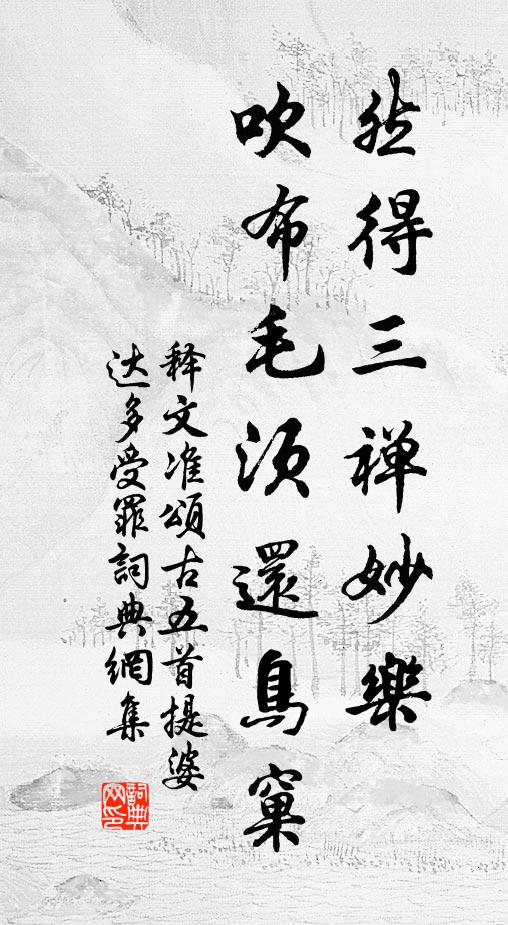 然得三禅妙樂
吹布毛须還鳥窠
释文准頌古五首提婆
达多受罪詞典網集
詞典网印